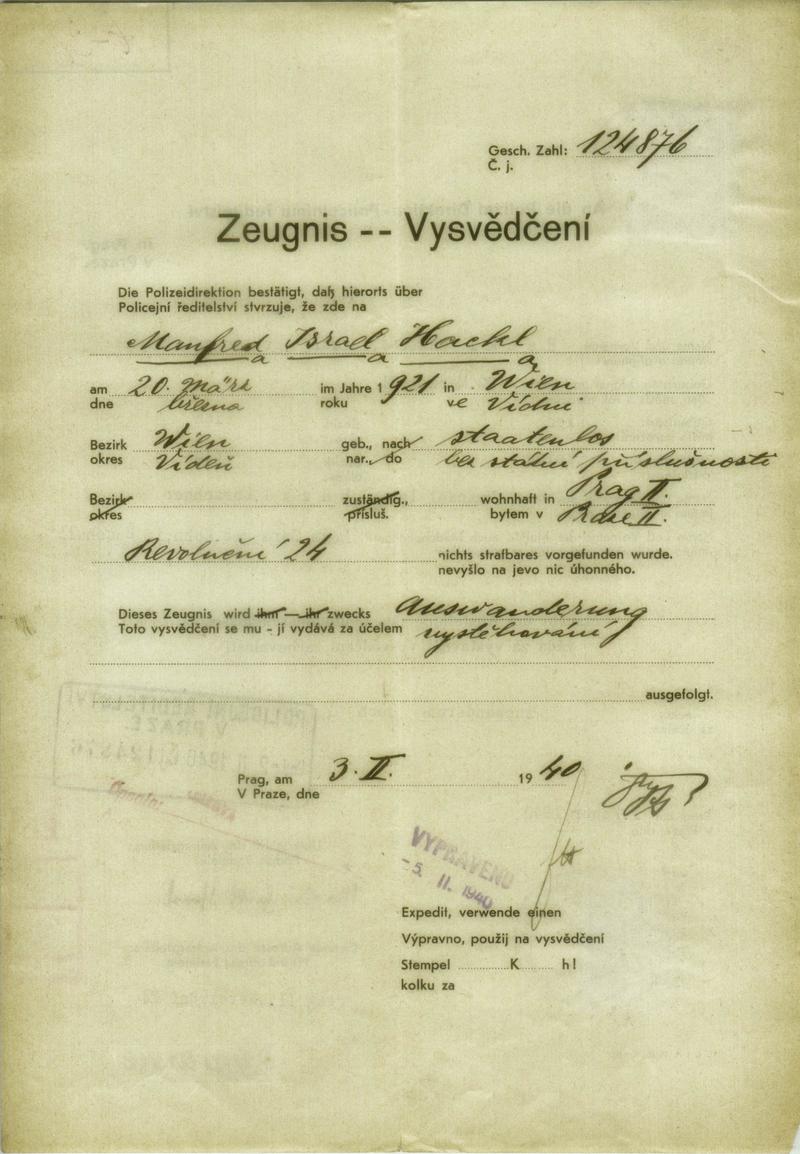 Gesch. Zahl: 124876
Č. j.
Zeugnis -- Vysvědčení
Die Polizeidirektion bestätigt, daß hierorts über
Policejní ředitelství stvrzuje, že zde na
Manfred Israel Hackl
a a a
am 20. März im Jahre 1921 in Wien
dne března roku ve Vídni
Bezirk Wien geb., nach staatenlos
okres Vídeň nar., do bez státní příslušnosti
Bezirk zuständig., wohnhaft in Prag II.
okres přísluš. bytem v Praze II.
Revoluční 24 nichts strafbares vorgefunden wurde.
nevyšlo na jevo nic úhonného.
Dieses Zeugnis wird ihm — ihr zwecks Auswanderung
Toto vysvědčení se mu - jí vydává za účelem vystěhování
ausgefolgt.
V PRAZE
Prag, am 3. II. 1940
V Praze, dne
VYPRAVENO
-5. II. 1940
Expedit, verwende einen
Výpravno, použij na vysvědčení
Stempel K h!
kolku za